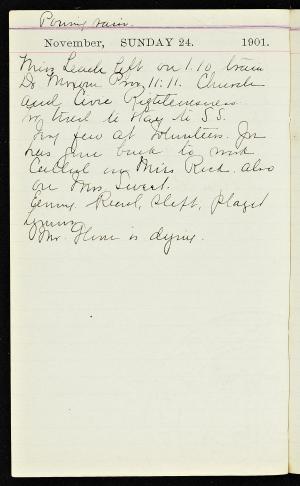 Pouring rain.
November, SUNDAY 24. 1901.
Miss Leach left on 1.10 train
Dr. Moxom Prov. 11:11. Church
and Civic Righteousness
to stay to S.S.
few at Volunteers. Jim
has gone back to work
Called on Miss Rich. also
on Mrs Sweet.
Evening. Read, slept, played
hymns
Mr. is dying.